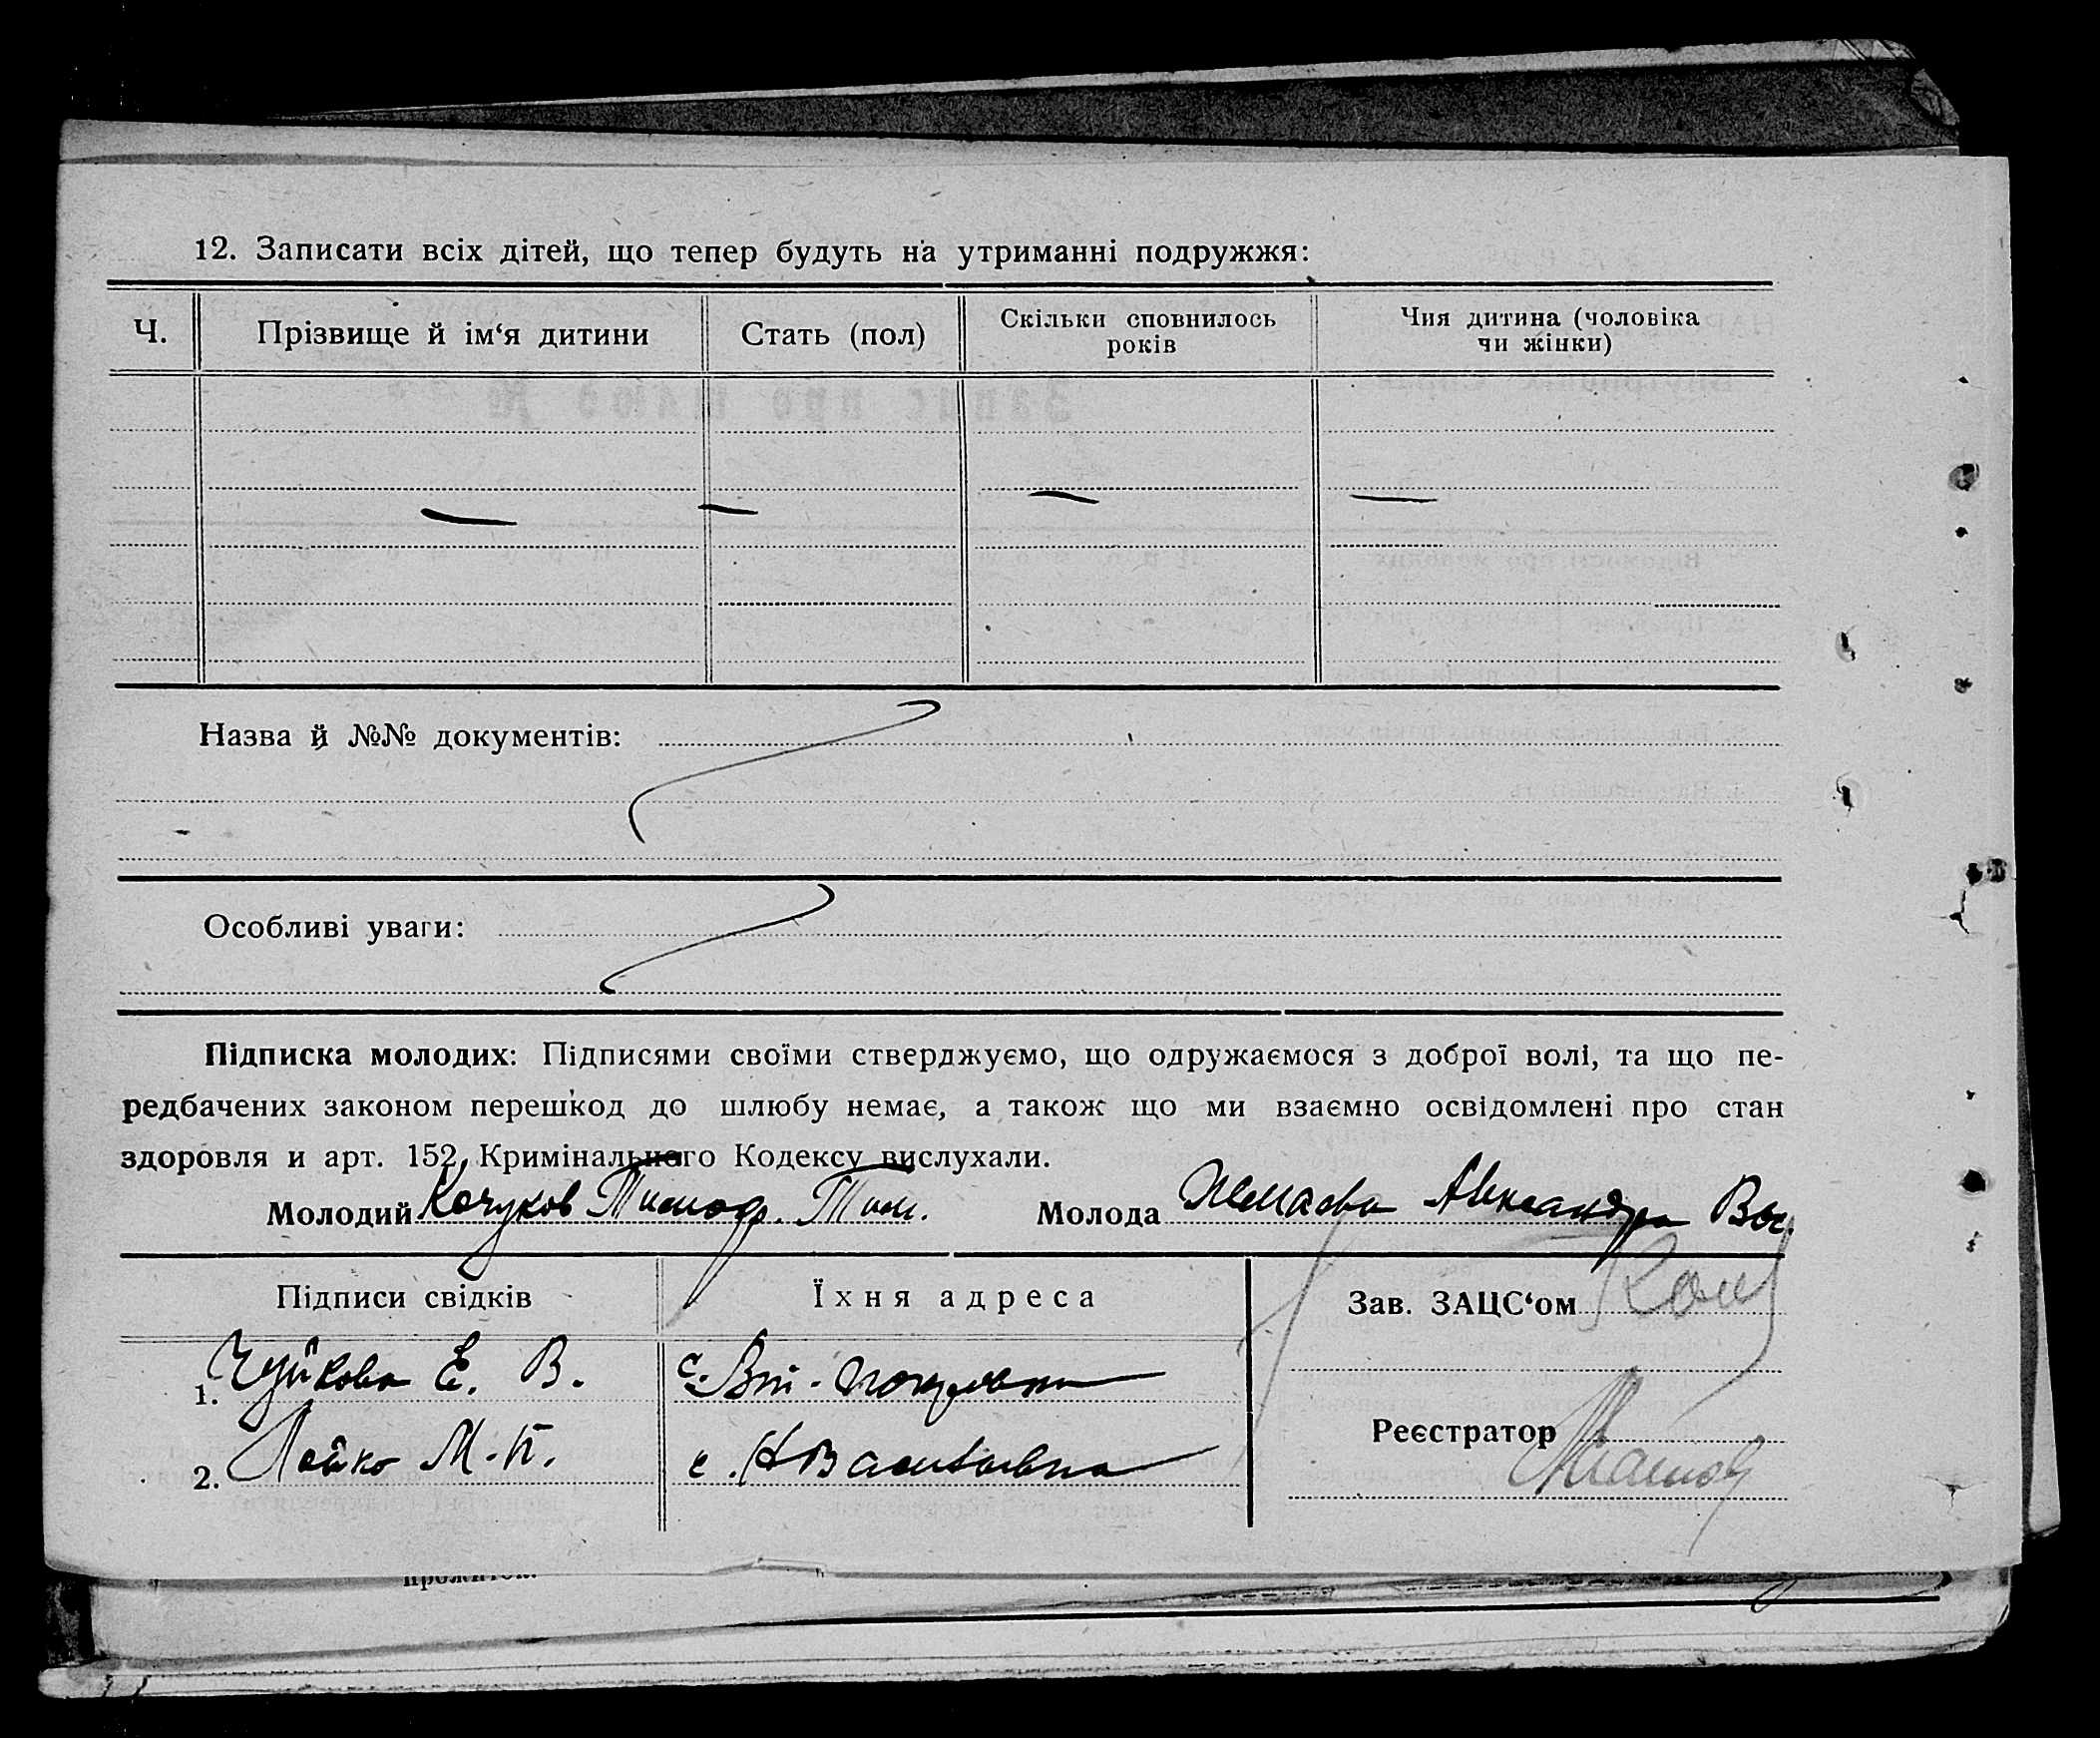 12. Записати всіх дітей, що тепер будуть на утриманні подружжя:
Ч.
Прізвище й ім‘я дитини
Стать (пол)
Скільки сповнилось
років
Чия дитина (чоловіка
чи жінки)
Назва й №№ документів:
Особливі уваги:
Підписка молодих: Підписями своїми стверджуємо, що одружаємося з доброї волі, та що пе-
редбачених законом перешкод до шлюбу немає, а також що ми взаємно освідомлені про стан
здоровля и арт. 152 Кримінального Кодексу вислухали.
Молодий Кочуков Тимоф. Тим.
Молода Александра Вас.
Підписи свідків
Їхня адреса
Зав. ЗАЦС‘ом
1. Чуйкова Е. В.
с.
Реєстратор
2. М. П.
с.